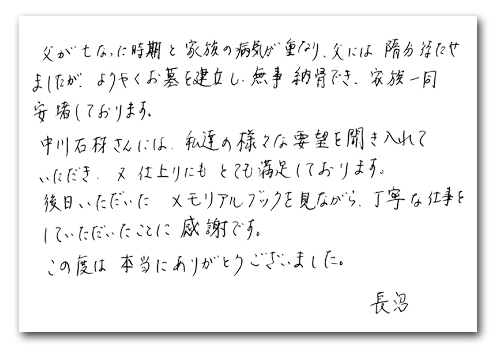 父が亡なった時期と家族の病気が重なり、父には随分待たせ
ましたが、ようやくお墓を建立し、無事納骨でき、家族一同
安堵しております。
中川石材さんには、私達の様々な要望を聞き入れて
いただき、又仕上りにもとても満足しております。
後日いただいたメモリアルブックを見ながら、丁寧な仕事を
していただいたことに感謝です。
この度は本当にありがとうございました。
長沼